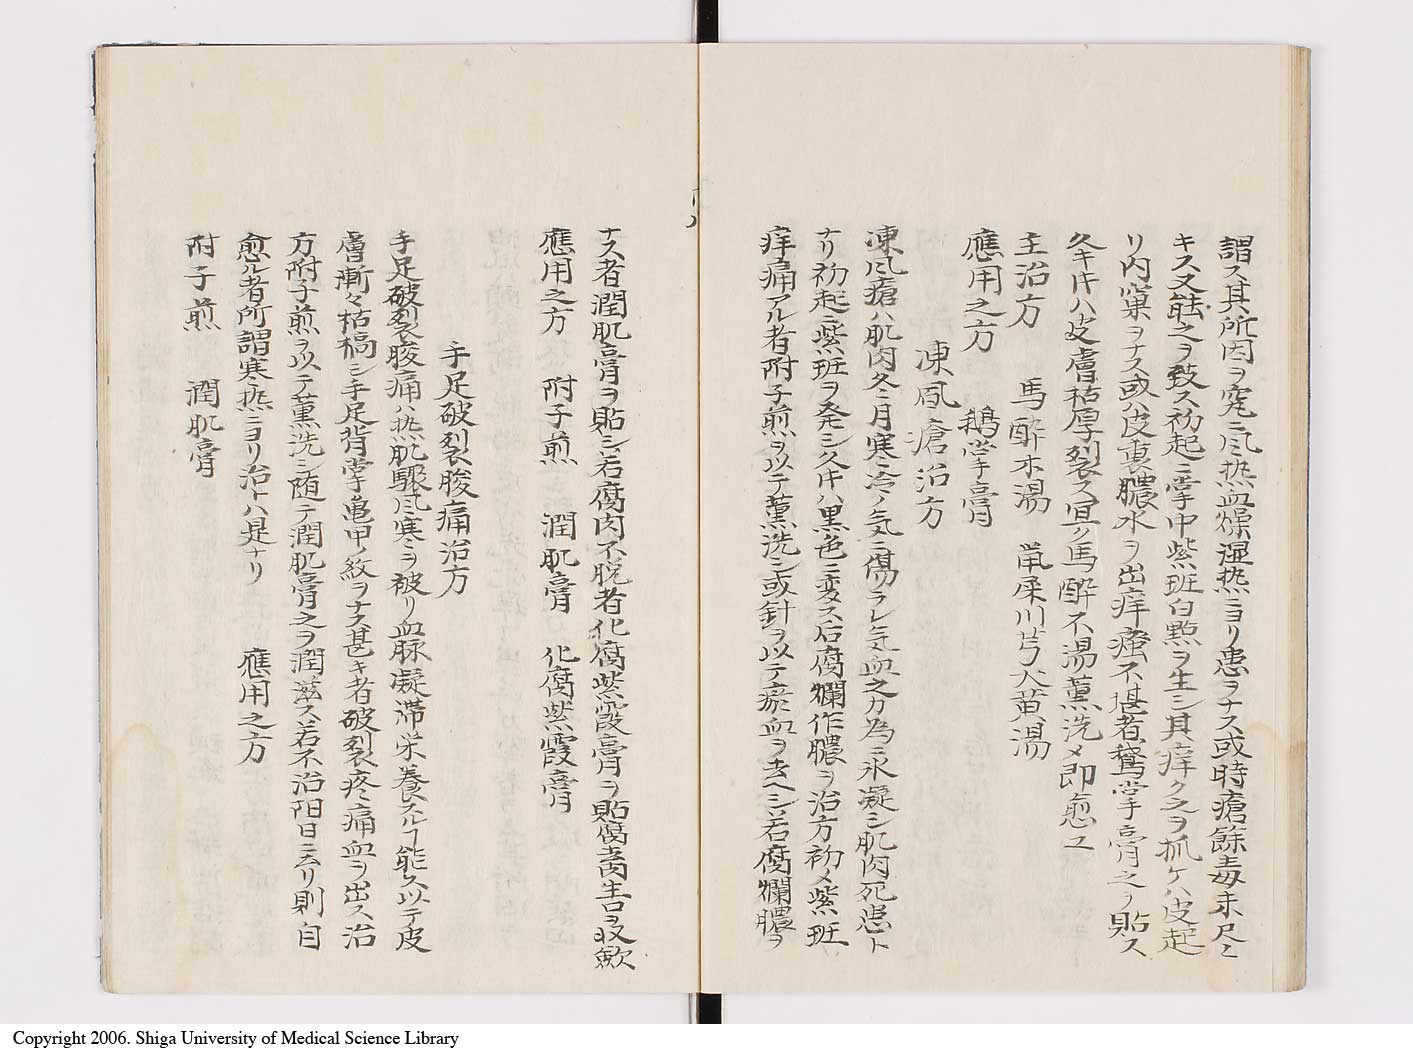 謂ス其所因ヲ窕ニ風热血燥湿热ニヨリ患ヲナス或時瘡餘毒未尽ニ
キス又能之ヲ致ス初起ニ掌中紫班白點ヲ生シ其痒ク之ヲ抓ケハ皮起
リ内窠ヲナス或ハ皮裏膿水ヲ出痒瘙不堪者鵞掌膏之ヲ貼ス
久キ片ハ皮膚枯厚裂ス宜ク馬酔木湯薫洗メ即愈ユ
主治方　馬酔木湯　鼡屎川芎大黄湯
應用之方　鵝掌膏
凍風瘡治方
凍風瘡ハ肌肉冬月寒冷ノ気ニ傷ラレ気血之カ為ニ氷凝シ肌肉死患ト
ナリ初起ニ紫班ヲ発シ久片ハ黒色ニ変ス后腐爛作膿ヲ治方初メ紫班
痒痛アル者附子煎ヲ以テ薫洗シ或針ヲ以テ瘀血ヲ去ヘシ若腐爛膿ヲ
ナス者潤肌膏ヲ貼シ若腐肉不脱者化腐紫霞膏ヲ貼腐脔告ヲ收歛
應用之方　附子煎　潤肌膏　化腐紫霞膏
手足破裂朘痛治方
手足破裂朘痛ハ热肌驟風寒ヲ被リ血脉凝滞栄養スルヿ能ス以テ皮
膚漸々枯槁シ手足背掌亀甲ノ紋ヲナス甚キ者破裂疼痛血ヲ出ス治
方附子煎ヲ以テ薫洗シ随テ潤肌膏之ヲ潤滋ス若不治陽日ニ至リ則自
愈ル者所謂寒热ニヨリ治トハ是ナリ　應用之方
附子煎　潤肌膏
Copyright 2006. Shiga University of Medical Science Library